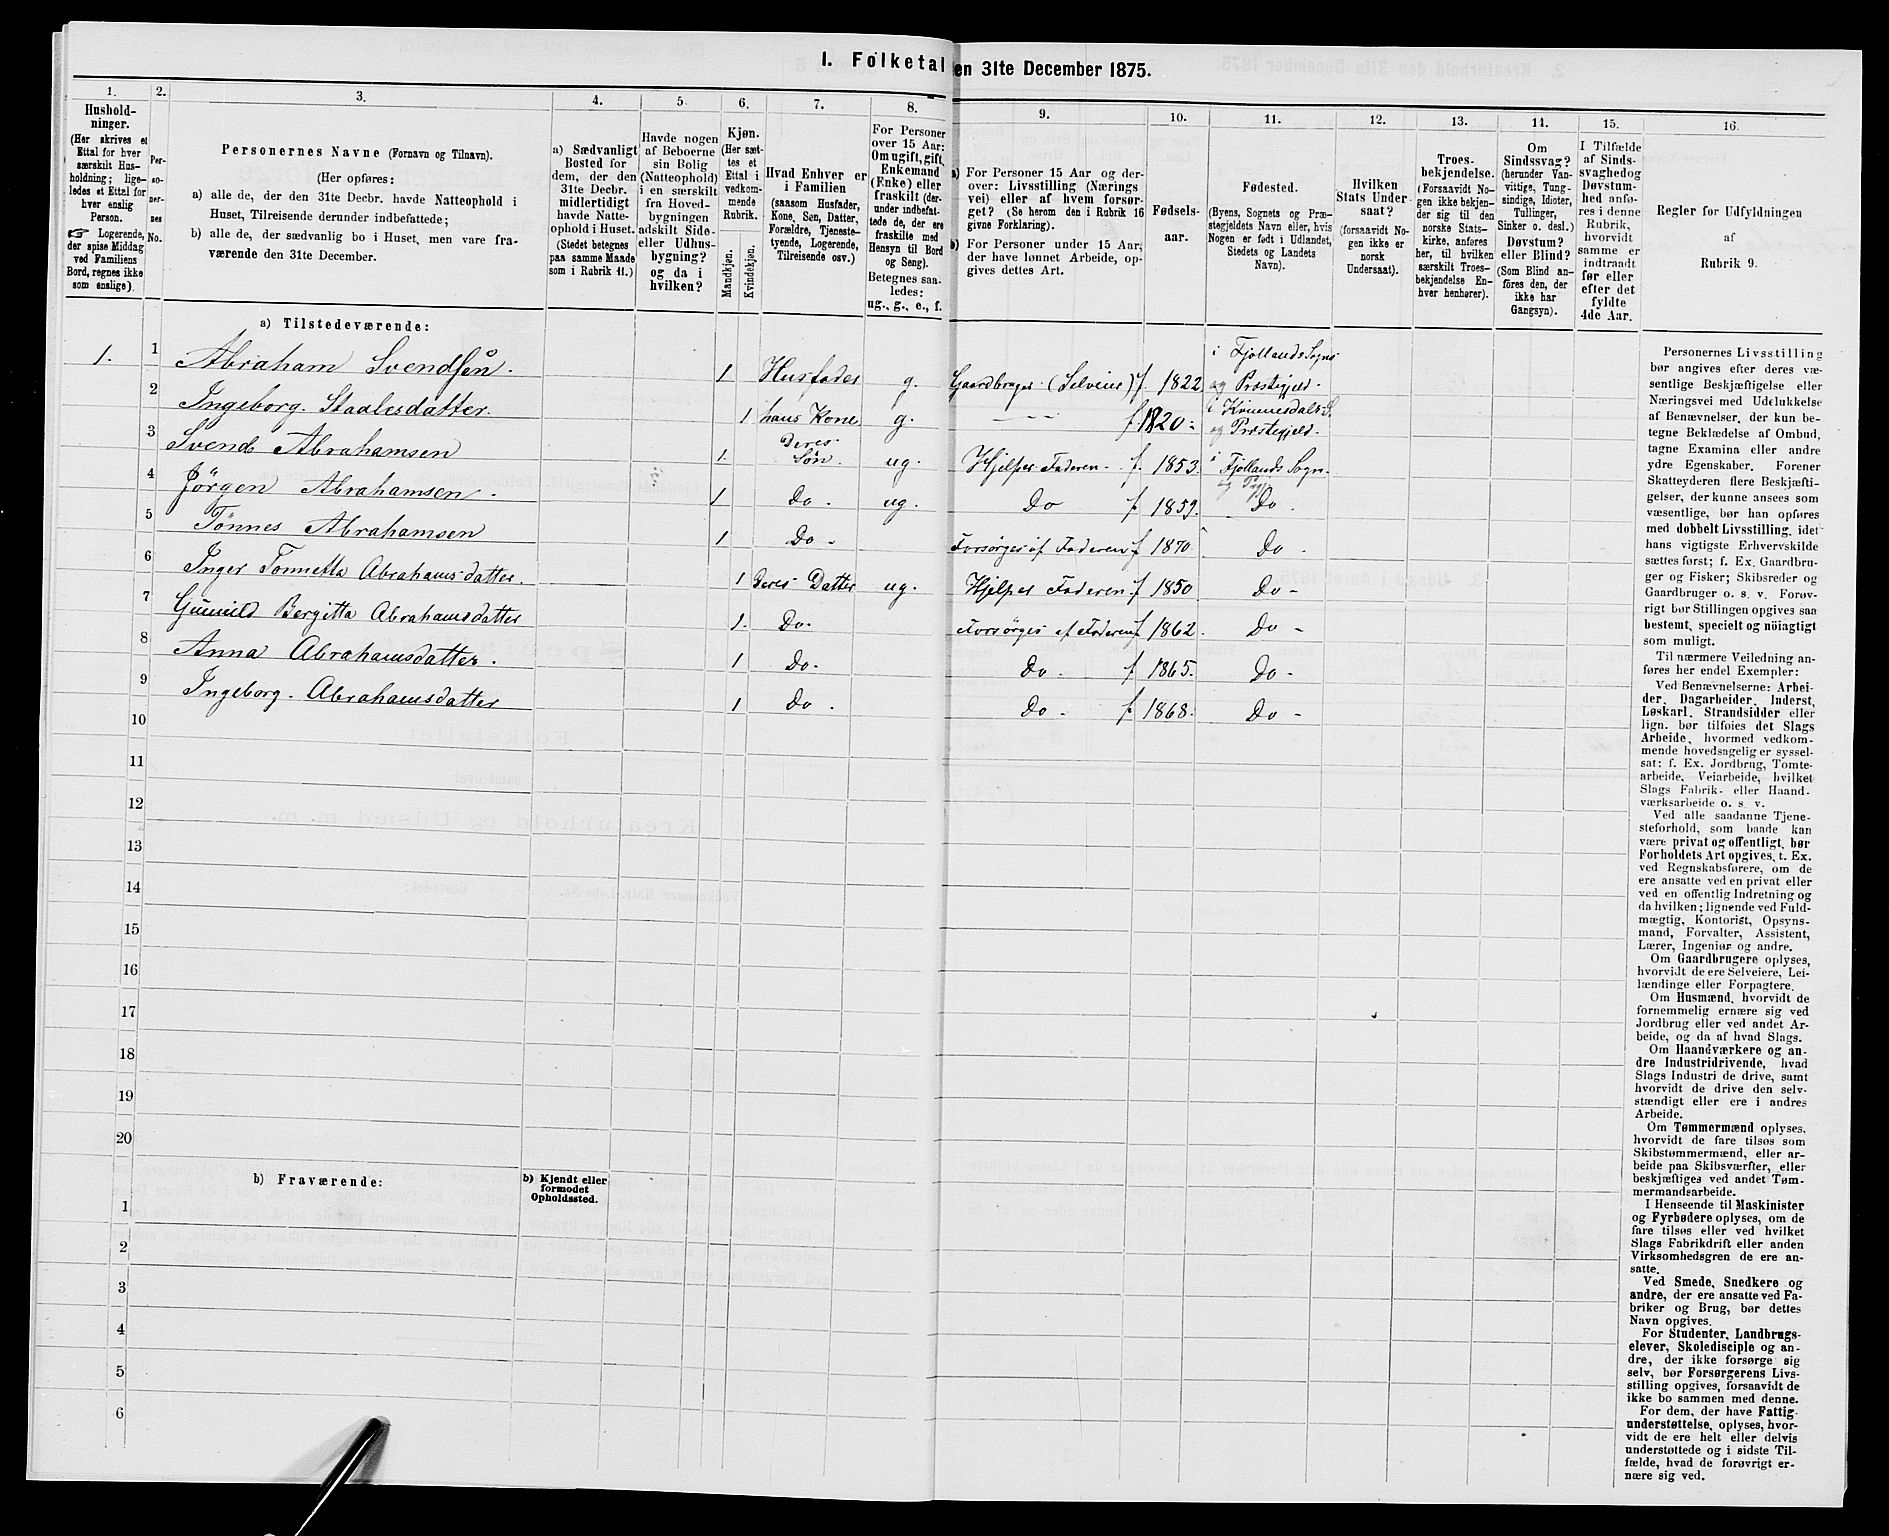 1. Folketal den 31te December 1875.
1.
Hushold-
ninger.
(Her skrives et
Ettal for hver
særskilt Hus-
holdning; lige-
ledes et Ettal for
hver enslig
Person.
☞ Logerende,
der spise Middag
ved Familiens
Bord, regnes ikke
som enslige).
2.
Per-
so-
ner-
nes
No.
3.
Personernes Navne (Fornavn og Tilnavn).
(Her opføres:
a) alle de, der den 31te Decbr. havde Natteophold i
Huset, Tilreisende derunder indbefattede;
b) alle de, der sædvanlig bo i Huset, men vare fra-
værende den 31te December.
4.
a) Sædvanligt
Bosted for
dem, der den
31te Decbr.
midlertidigt
havde Natte-
ophold i Huset.
(Stedet betegnes
paa samme Maade
som i Rubrik 11.)
5.
Havde nogen
af Beboerne
sin Bolig
(Natteophold)
i en særskilt
fra Hoved-
bygningen
adskilt Side-
eller Udhus-
bygning?
og da i
hvilken?
6.
Kjøn.
(Her sæt-
tes et
Ettal i
vedkom-
mende
Rubrik.
Mandkjøn.
Kvindekjøn.
7.
Hvad Enhver er
i Familien
(saasom Husfader,
Kone, Søn, Datter,
Forældre, Tjeneste-
tyende, Logerende,
Tilreisende osv.)
8.
For Personer
over 15 Aar:
Om ugift, gift,
Enkemand
(Enke) eller
fraskilt (der-
under indbefat-
tede de, der ere
fraskilte med
Hensyn til Bord
og Seng).
Betegnes saa-
ledes:
ug., g., e., f.
9.
a) For Personer 15 Aar og der-
over: Livsstilling (Nærings
vei) eller af hvem forsør-
get? (Se herom den i Rubrik 16
givne Forklaring).
b) For Personer under 15 Aar,
der have lønnet Arbeide, op-
gives dettes Art.
10.
Fødsels-
aar.
11.
Fødested.
(Byens, Sognets og Præ-
stegjeldets Navn eller, hvis
Nogen er født i Udlandet,
Stedets og Landets
Navn).
12.
Hvilken
Stats Under-
saat?
(forsaavidt No-
gen ikke er
norsk
Undersaat).
13.
Troes-
bekjendelse.
(Forsaavidt No-
gen ikke bekjen-
der sig til den
norske Stats-
kirke, anføres
her, til hvilken
særskilt Troes-
bekjendelse En-
hver henhører).
14.
Om
Sindssvag?
(herunder Van-
vittige, Tung-
sindige, Idioter,
Tullinger,
Sinker o. desl.)
Døvstum?
eller Blind?
(Som Blind an-
føres den, der
ikke har
Gangsyn).
15.
I Tilfælde
af Sinds-
svaghed og
Døvstum-
hed anfø-
res i denne
Rubrik,
hvorvidt
samme er
indtraadt
før eller
efter det
fyldte
4de Aar.
16.
Regler for Udfyldningen
af
Rubrik 9.
a) Tilstedeværende:
1. 1 Abraham Svendsen. 1 Husfader g. Gaardbruger (Selveier) f. 1822 i Fjollands Sogn og Præstegjeld.
2 Ingeborg. Staalesdatter. 1 hans Kone g. — f. 1820. i Kvinnesdals S. og Præstegjeld.
3 Svend Abrahamsen 1. Deres Søn. ug. Hjelper Faderen. f. 1853. i Fjollands Sogn. og Pgj.
4 Jörgen Abrahamsen. 1 Do. ug. Do f 1859. Do.
5 Tönnes Abrahamsen 1 Do. Forsørges af Faderen f 1870. Do.
6 Inger Tonnetta Abrahamsdatter. 1 Deres Datter ug. Hjelper Faderen f 1850 Do.
7 Gunuld Bergitta Abrahamsdatter 1. Do. Forsørges af Faderen f 1862. Do.
8 Anna Abrahamsdatter. 1 Do. Do. f 1865. Do.
9 Ingeborg. Abrahamsdatter 1 Do. Do. f 1868. Do.
10
11
12
13
14
15
16
17
18
19
20
b) Fraværende:
b) Kjendt eller
formodet
Opholdssted.
1
2
3
4
5
6
Personernes Livsstilling
bør angives efter deres væ-
sentlige Beskjæftigelse eller
Næringsvei med Udelukkelse
af Benævnelser, der kun be-
tegne Beklædelse af Ombud,
tagne Examina eller andre
ydre Egenskaber. Forener
Skatteyderen flere Beskjæfti-
gelser, der kunne ansees som
væsentlige, bør han opføres
med dobbelt Livsstilling, idet
hans vigtigste Erhvervskilde
sættes først; f. Ex. Gaardbru-
ger og Fisker; Skibsreder og
Gaardbruger o. s. v. Forøv-
rigt bør Stillingen opgives saa
bestemt, specielt og nöiagtigt
som muligt.
Til nærmere Veiledning an-
føres her endel Exempler:
Ved Benævnelserne: Arbei-
der, Dagarbeider, Inderst,
Løskarl, Strandsidder eller
lign. bør tilføies det Slags
Arbeide, hvormed vedkom-
mende hovedsagelig er syssel-
sat: f. Ex. Jordbrug, Tomte-
arbeide, Veiarbeide, hvilket
Slags Fabrik- eller Haand-
værksarbeide o. s. v.
Ved alle saadanne Tjene-
steforhold, som baade kan
være privat og offentligt, bør
Forholdets Art opgives, t. Ex.
ved Regnskabsførere, om de
ere ansatte ved en privat eller
ved en offentlig Indretning og
da hvilken; lignende ved Fuld-
mægtig, Kontorist, Opsyns-
mand, Forvalter, Assistent,
Lærer, Ingeniør og andre.
Om Gaardbrugere oplyses,
hvorvidt de ere Selveiere, Lei-
lændinge eller Forpagtere.
Om Husmænd, hvorvidt de
fornemmelig ernære sig ved
Jordbrug eller ved andet Ar-
beide, og da af hvad Slags.
Om Haandværkere og an-
dre Industridrivende, hvad
Slags Industri de drive, samt
hvorvidt de drive den selv-
stændigt eller ere i andres
Arbeide.
Om Tømmermænd oplyses,
hvorvidt de fare tilsøs som
Skibstømmermænd, eller ar-
beide paa Skibsværfter, eller
beskjæftiges ved andet Tøm-
mermandsarbeide.
I Henseende til Maskinister
og Fyrbødere oplyses, om de
fare tilsøs eller ved hvilket
Slags Fabrikdrift eller anden
Virksomhedsgren de ere an-
satte.
Ved Smede, Snedkere og
andre, der ere ansatte ved Fa-
briker og Brug, bør dettes
Navn opgives.
For Studenter, Landbrugs-
elever, Skoledisciple og an-
dre, der ikke forsørge sig
selv, bør Forsørgerens Livs-
stilling opgives, forsaavidt de
ikke bo sammen med denne.
For dem, der have Fattig-
understøttelse, oplyses, hvor-
vidt de ere helt eller delvis
understøttede og i sidste Til-
fælde, hvad de forøvrigt er-
nære sig ved.